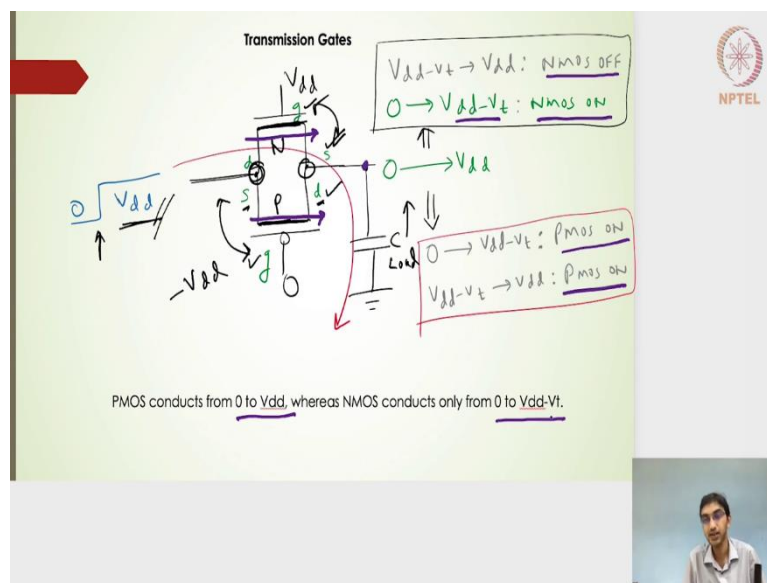 Transmission Gates
NPTEL
Vdd-Vt → Vdd : NMOS OFF
0 → Vdd-Vt : NMOS ON
Vdd
g
N
d
s
0 → Vdd
0
Vdd
s
P
d
C
Load
g
-Vdd
0
0 → Vdd-Vt : PMOS ON
Vdd-Vt → Vdd : PMOS ON
PMOS conducts from 0 to Vdd, whereas NMOS conducts only from 0 to Vdd-Vt.